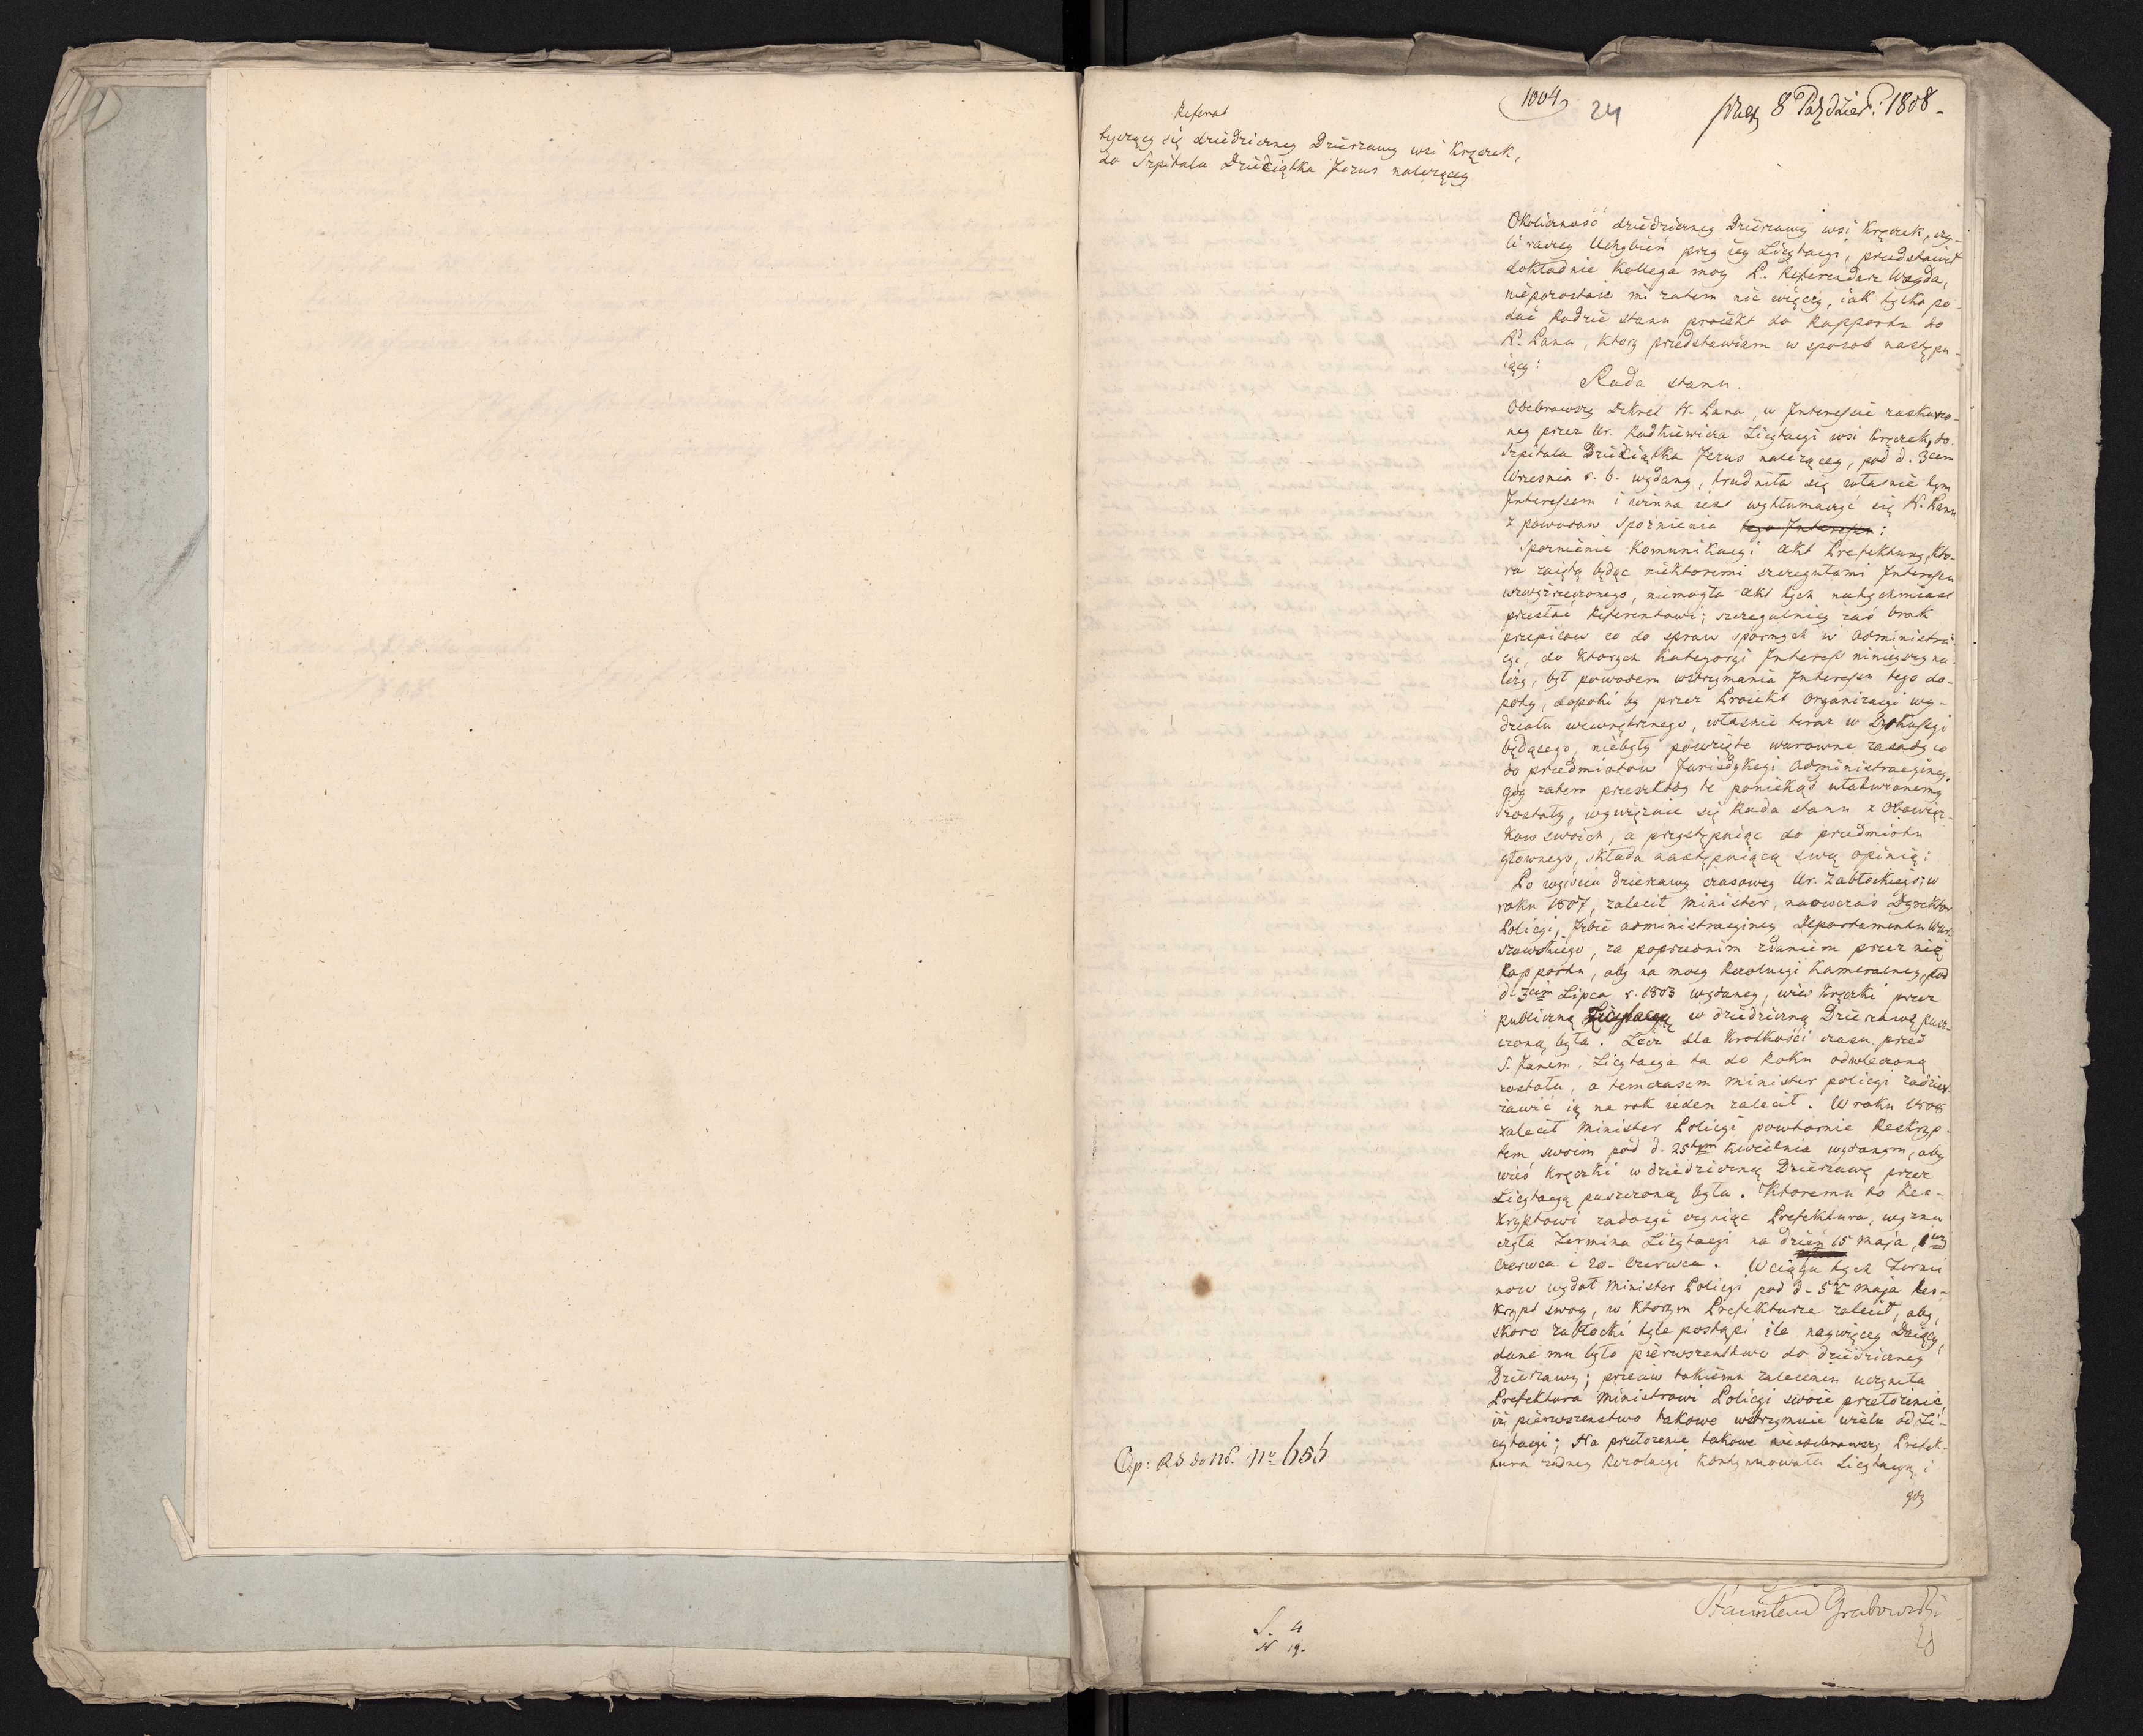 1004
24
prez 8 Paździer: 1808 -
Referat
tyczący się dziedziczney Dzierzawy wsi Kręczek,
do Szpitala Dzieciątka Jezus należącey
Okoliczność dziedziczney Dzierzawy wsi Kręczek, czy-
li raczey Uchybień przy iey Licytacyi, przedstawił
dokładnie Kollega moy P. Referendarz Woyda,
niepozostaie mi zatem nic więcey, iak tylko po-
dać Radzie stanu proiekt do Rapportu do
K. Pana, ktory przedstawiam w sposob następu-
iący:
Rada stanu.
Odebrawszy Dekret N. Pana, w Interessie zaskarżo-
ney przez Ur. Radkiewicza Licytacyi wsi Kręczek, do
Szpitala Dzieciątka Jezus należącey, pod d. 3cim
Września r. b. wydany, trudniła się własnie tym
Interessem i winna iest wytłumaczyć się N. Panu
z powodow Spoźnienia tego Interessu:
Spoznienie Komunikacyi akt Prefektury, kto-
ra zaiętą będąc niektoremi szczegułami Interessu
wzwyżrzeczonego, niemogła akt tych natychmiast
przesłać Referentowi; szczegulniey zaś brak
przepisow co do spraw spornych w administra-
cyi, do ktorych kategoryi Interess ninieyszy na-
leży, był powodem wstrzymania Interessu tego do-
poty, dopoki by przez Proiekt organizacyi wy-
działu wewnętrznego, własnie teraz w Dyskussyi
będącego, niebyły powzięte warowne zasady co
do przedmiotow Jurisdykcyi administracyiney.
gdy zatem przeszkody te poniekąd ułatwionemi
zostały, wywięzuie się Rada stanu z Obowiąz-
kow swoich, a przystępuiąc do przedmiotu
głownego, składa następuiącą swą opinią:
Po wyiściu dzierzawy czasowey Ur. Zabłockiego, w
roku 1807, zalecił Minister, naowczas Dyrektor
Policyi, Izbie administracyiney Departamentu War-
szawskiego, za poprzednim zdaniem przez nię
Rapportu, aby na mocy Rezolucyi Kameralney, pod
d. 3cim Lipca r. 1803 wydaney, wieś Kręczki przez
publiczną Licytacyą w dziedziczną Dzierzawę pusz-
czoną była. Lecz dla krotkości czasu przed
S. Janem, Licytacya ta do Roku odwleczoną
została, a temczasem Minister policyi zadzier-
żawić ią na rok ieden zalecił. W roku 1808
zalecił Minister Policyi powtornie Reskryp-
tem swoim pod d. 25tym Kwietnia wydanym, aby
wieś Kręczki w dziedziczną Dzierzawę przez
Licytacyą puszczoną była. Ktoremu to Res-
kryptowi zadosyć czyniąc Prefektura, wyzna-
czyła Termina Licytacyi na dzień 15 Maja, 1wszy
Czerwca i 20. Czerwca. W ciągu tych Termi-
now wydał Minister Policyi pod d. 5tym Maja Res-
krypt swoy, w ktorym Prefekturze zalecił, aby,
skoro Zabłocki tyle postąpi ile naywięcey Daiący,
dane mu było pierwszenstwo do dziedziczney
Dzierzawy; przeciw takiemu zaleceniu uczyniła
Prefektura Ministrowi Policyi swoie przełożenie,
iż pierwszenstwo takowe wstrzymuie wielu od Li-
cytacyi; Na przełożenie takowe nieodebrawszy Prefek-
tura żadney Rezolucyi kontynuowała Licytacyą i
gdy
Op: RS do NP. No 656
Stanisław Grabowski
S. 4
N 19.